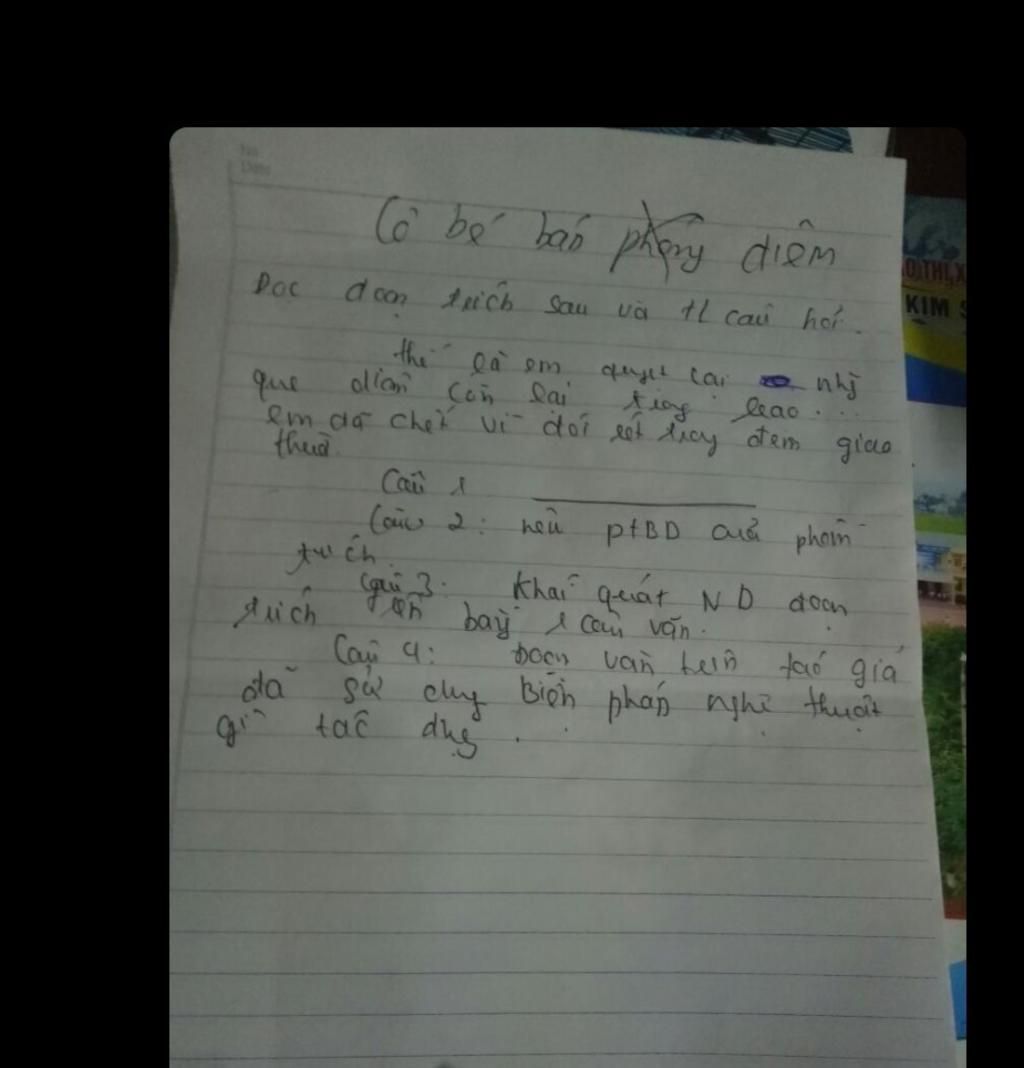 No
Date
Cô bé bán diêm
Đọc đoạn trích sau và tl câu hỏi.
thế là em quẹt tất nhg
que diêm còn lại trong bao...
em đã chết vì đói rét trong đêm giao
thừa.
Câu 1
Câu 2: nêu ptBD của phần
trích.
Câu 3: Khái quát ND đoạn
trích trên bằng 1 câu văn.
Câu 4: Đoạn văn trên tác giả
đã sử dụng Biện pháp nghệ thuật
gì tác dụng.
KIM S